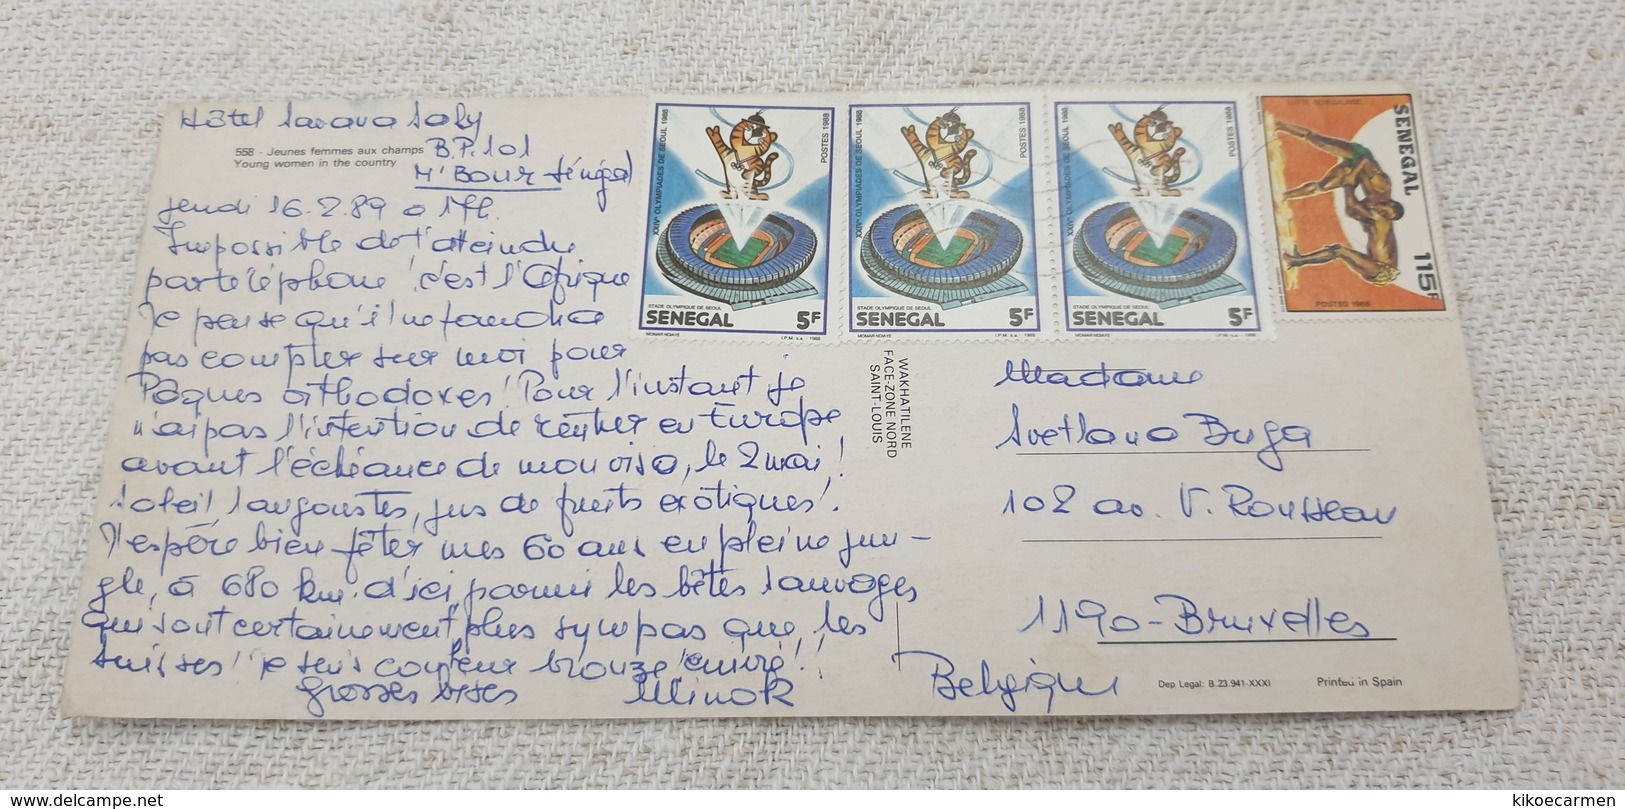 Hôtel Savana Saly
558 - Jeunes femmes aux champs
Young women in the country
B.P. 101
M'BOUR Sénégal
Jeudi 16.2.89 à 17h.
Impossible de t'atteindre
par téléphone! c'est l'Afrique
Je pense qu'il ne faudra
pas compter sur moi pour
Pâques orthodoxes! Pour l'instant je
n'ai pas l'intention de rentrer en Europe
avant l'échéance de mon visa, le 2 mai!
Soleil langoustes, jus de fruits exotiques!
J'espère bien fêter mes 60 ans en pleine jun-
gle, à 680 km. d'ici parmi les bêtes sauvages
qui sont certainement plus sympas que, les
suisses! je suis couleur bronze cuivré!!
Grosses bises Minok
XXIVe OLYMPIADES DE SEOUL 1988
POSTES 1988
STADE OLYMPIQUE DE SEOUL
SENEGAL 5F
MOMAR NDIAYE I.P.M. s.a. - 1988
XXIVe OLYMPIADES DE SEOUL 1988
POSTES 1988
STADE OLYMPIQUE DE SEOUL
SENEGAL 5F
MOMAR NDIAYE I.P.M. s.a. - 1988
XXIVe OLYMPIADES DE SEOUL 1988
POSTES 1988
STADE OLYMPIQUE DE SEOUL
SENEGAL 5F
MOMAR NDIAYE I.P.M. s.a. - 1988
LUTTE SENEGALAISE
SENEGAL
115F
POSTES 1988
WAKHATILENE
FACE-ZONE NORD
SAINT-LOUIS
Madame
Svetlana Buga
102 av. V. Rousseau
1190-Bruxelles
Belgique
Dep. Legal: B.23.941-XXXI
Printed in Spain
delcampe.net
kikoecarmen